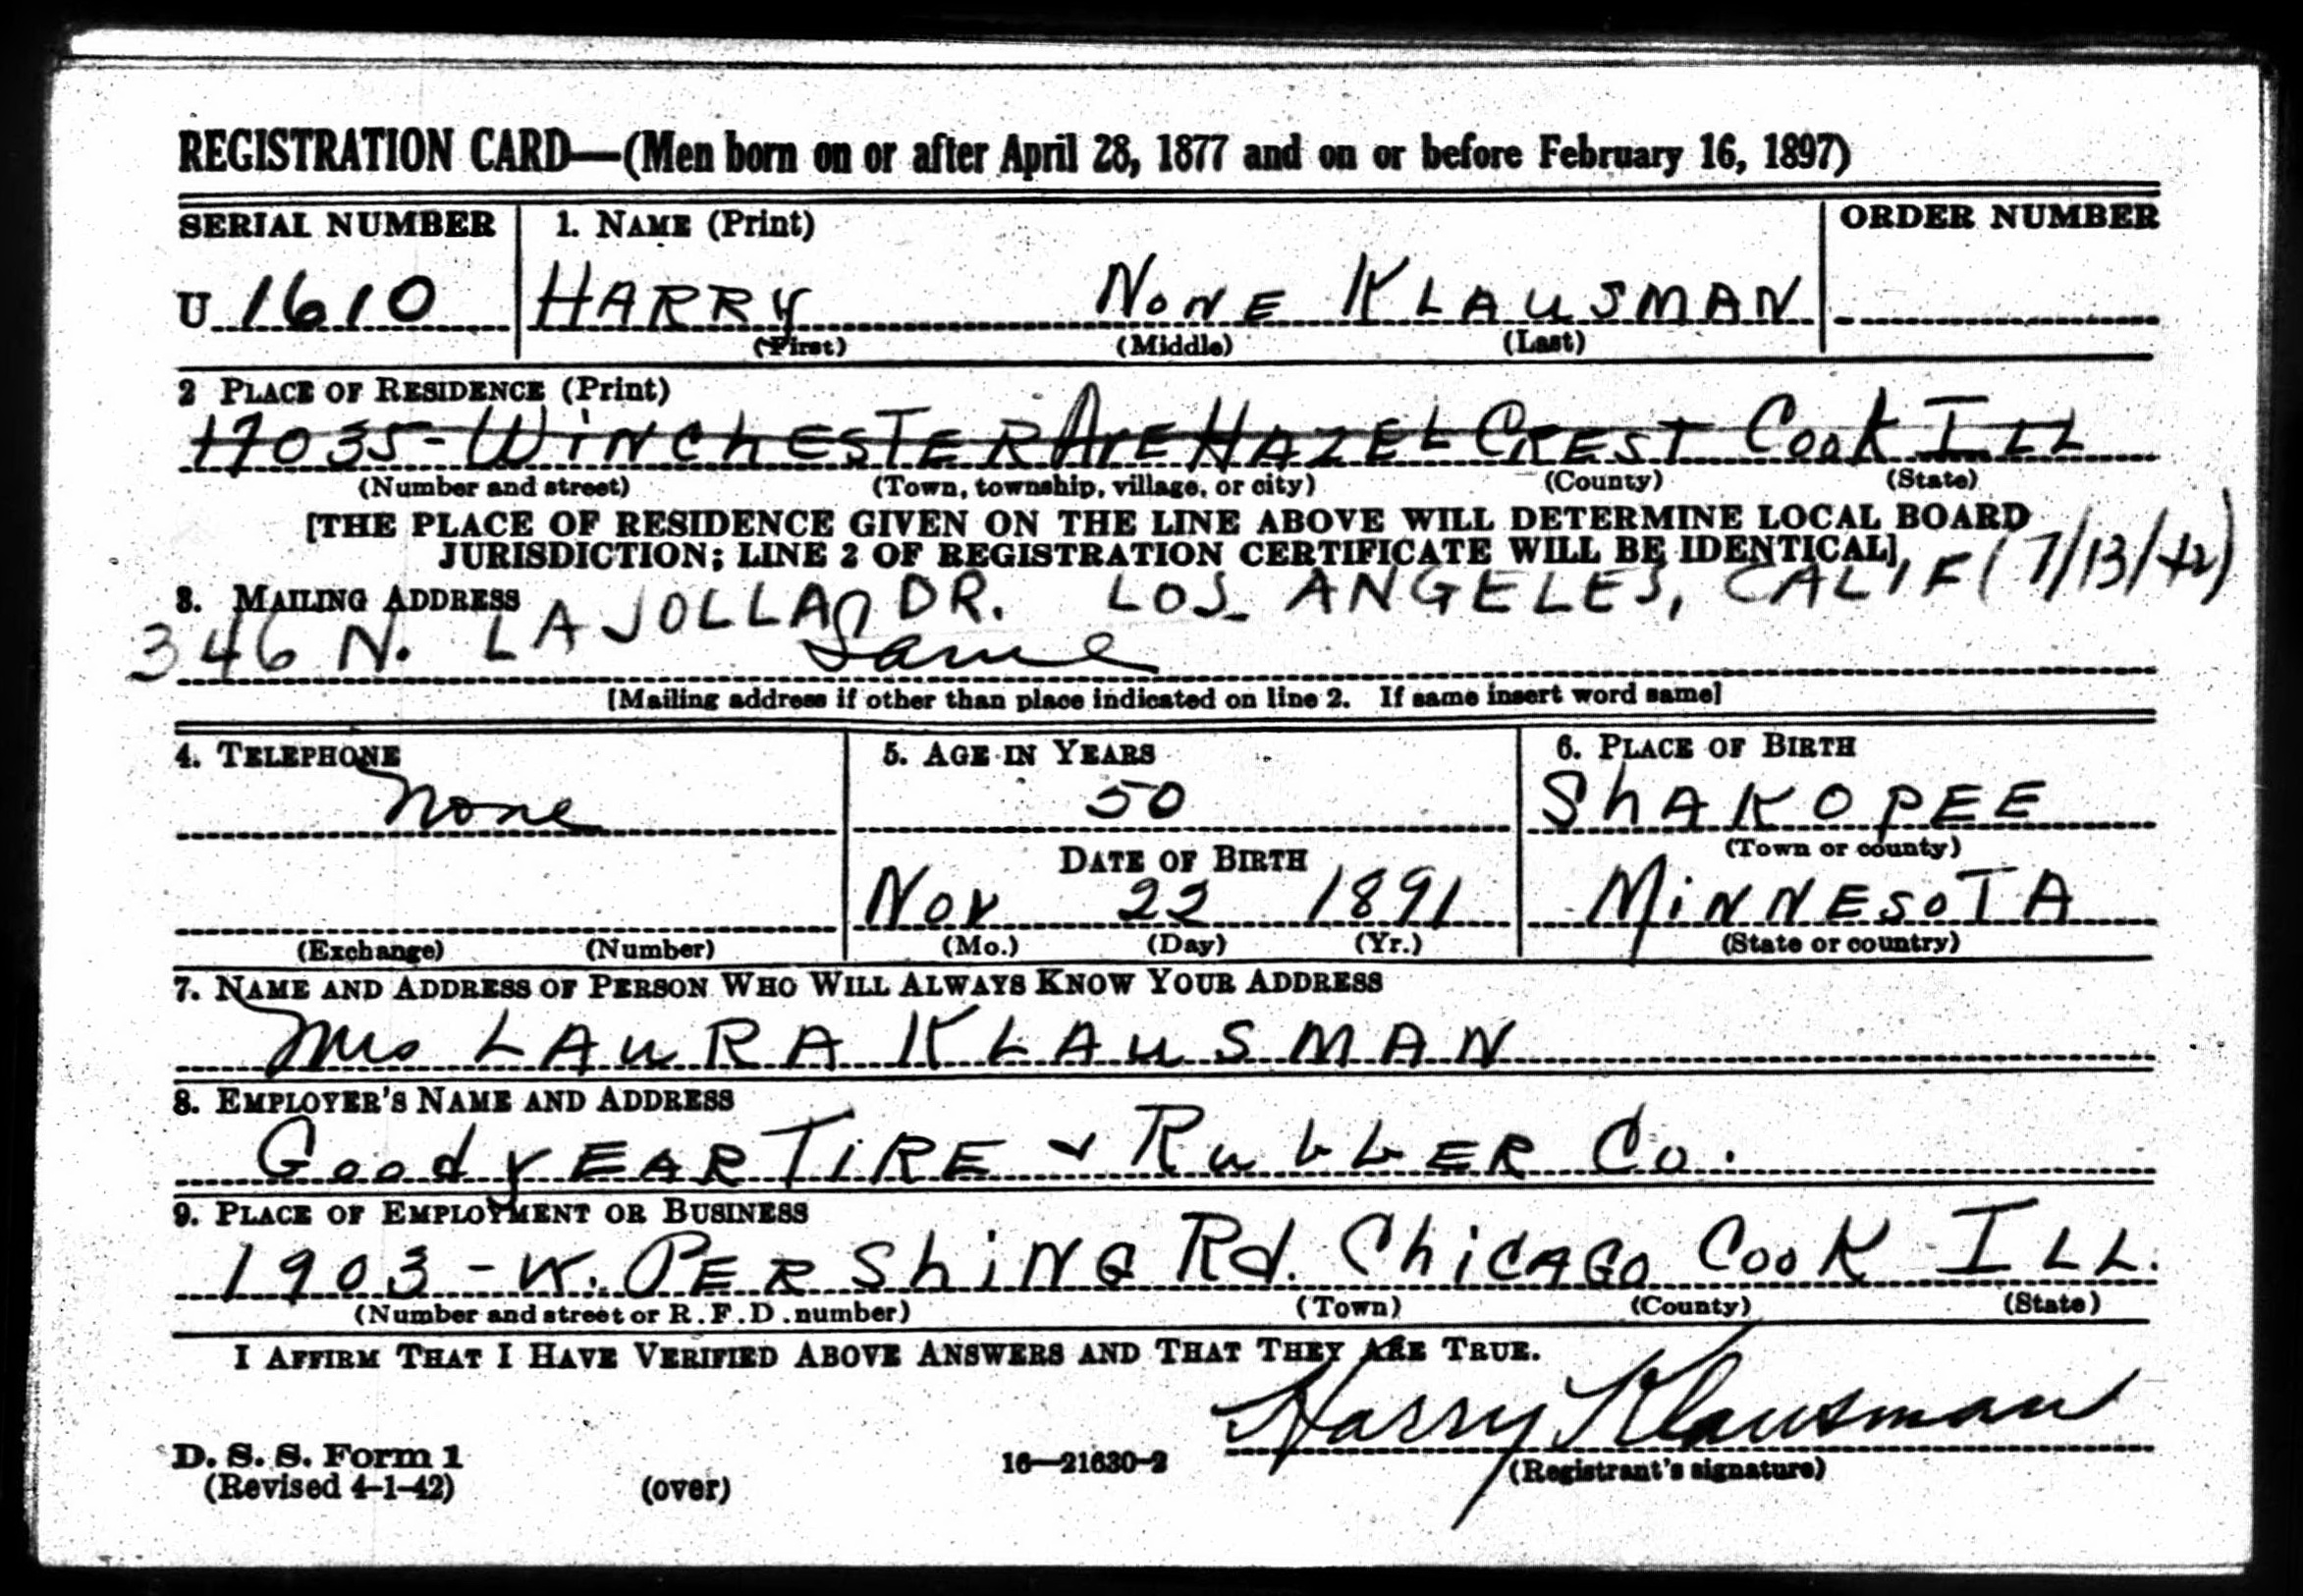 REGISTRATION CARD—(Men born on or after April 28, 1877 and on or before February 16, 1897)
SERIAL NUMBER 1. NAME (Print) ORDER NUMBER
U 1610 HARRY NONE KLAUSMAN
(First) (Middle) (Last)
2 PLACE OF RESIDENCE (Print)
17035-WINChESTER AVE HAZEL CREST COOK ILL
(Number and street) (Town, township, village, or city) (County) (State)
[THE PLACE OF RESIDENCE GIVEN ON THE LINE ABOVE WILL DETERMINE LOCAL BOARD
JURISDICTION; LINE 2 OF REGISTRATION CERTIFICATE WILL BE IDENTICAL]
3. MAILING ADDRESS
346 N. LA JOLLA DR. LOS ANGELES, CALIF (7/13/42)
Same
[Mailing address if other than place indicated on line 2. If same insert word same]
4. TELEPHONE 5. AGE IN YEARS 6. PLACE OF BIRTH
None 50 ShAKOPEE
(Town or county)
DATE OF BIRTH
Nov 22 1891 MINNESOTA
(Exchange) (Number) (Mo.) (Day) (Yr.) (State or country)
7. NAME AND ADDRESS OF PERSON WHO WILL ALWAYS KNOW YOUR ADDRESS
Mrs LAURA KLAUSMAN
8. EMPLOYER'S NAME AND ADDRESS
GoodyEAR TiRE & RubbER Co.
9. PLACE OF EMPLOYMENT OR BUSINESS
1903-W. PERShiNG Rd. ChiCAGo CooK ILL.
(Number and street or R.F.D. number) (Town) (County) (State)
I AFFIRM THAT I HAVE VERIFIED ABOVE ANSWERS AND THAT THEY ARE TRUE.
Harry Klausman
D. S. S. Form 1
(Revised 4-1-42) (over) 16—21630-2 (Registrant's signature)